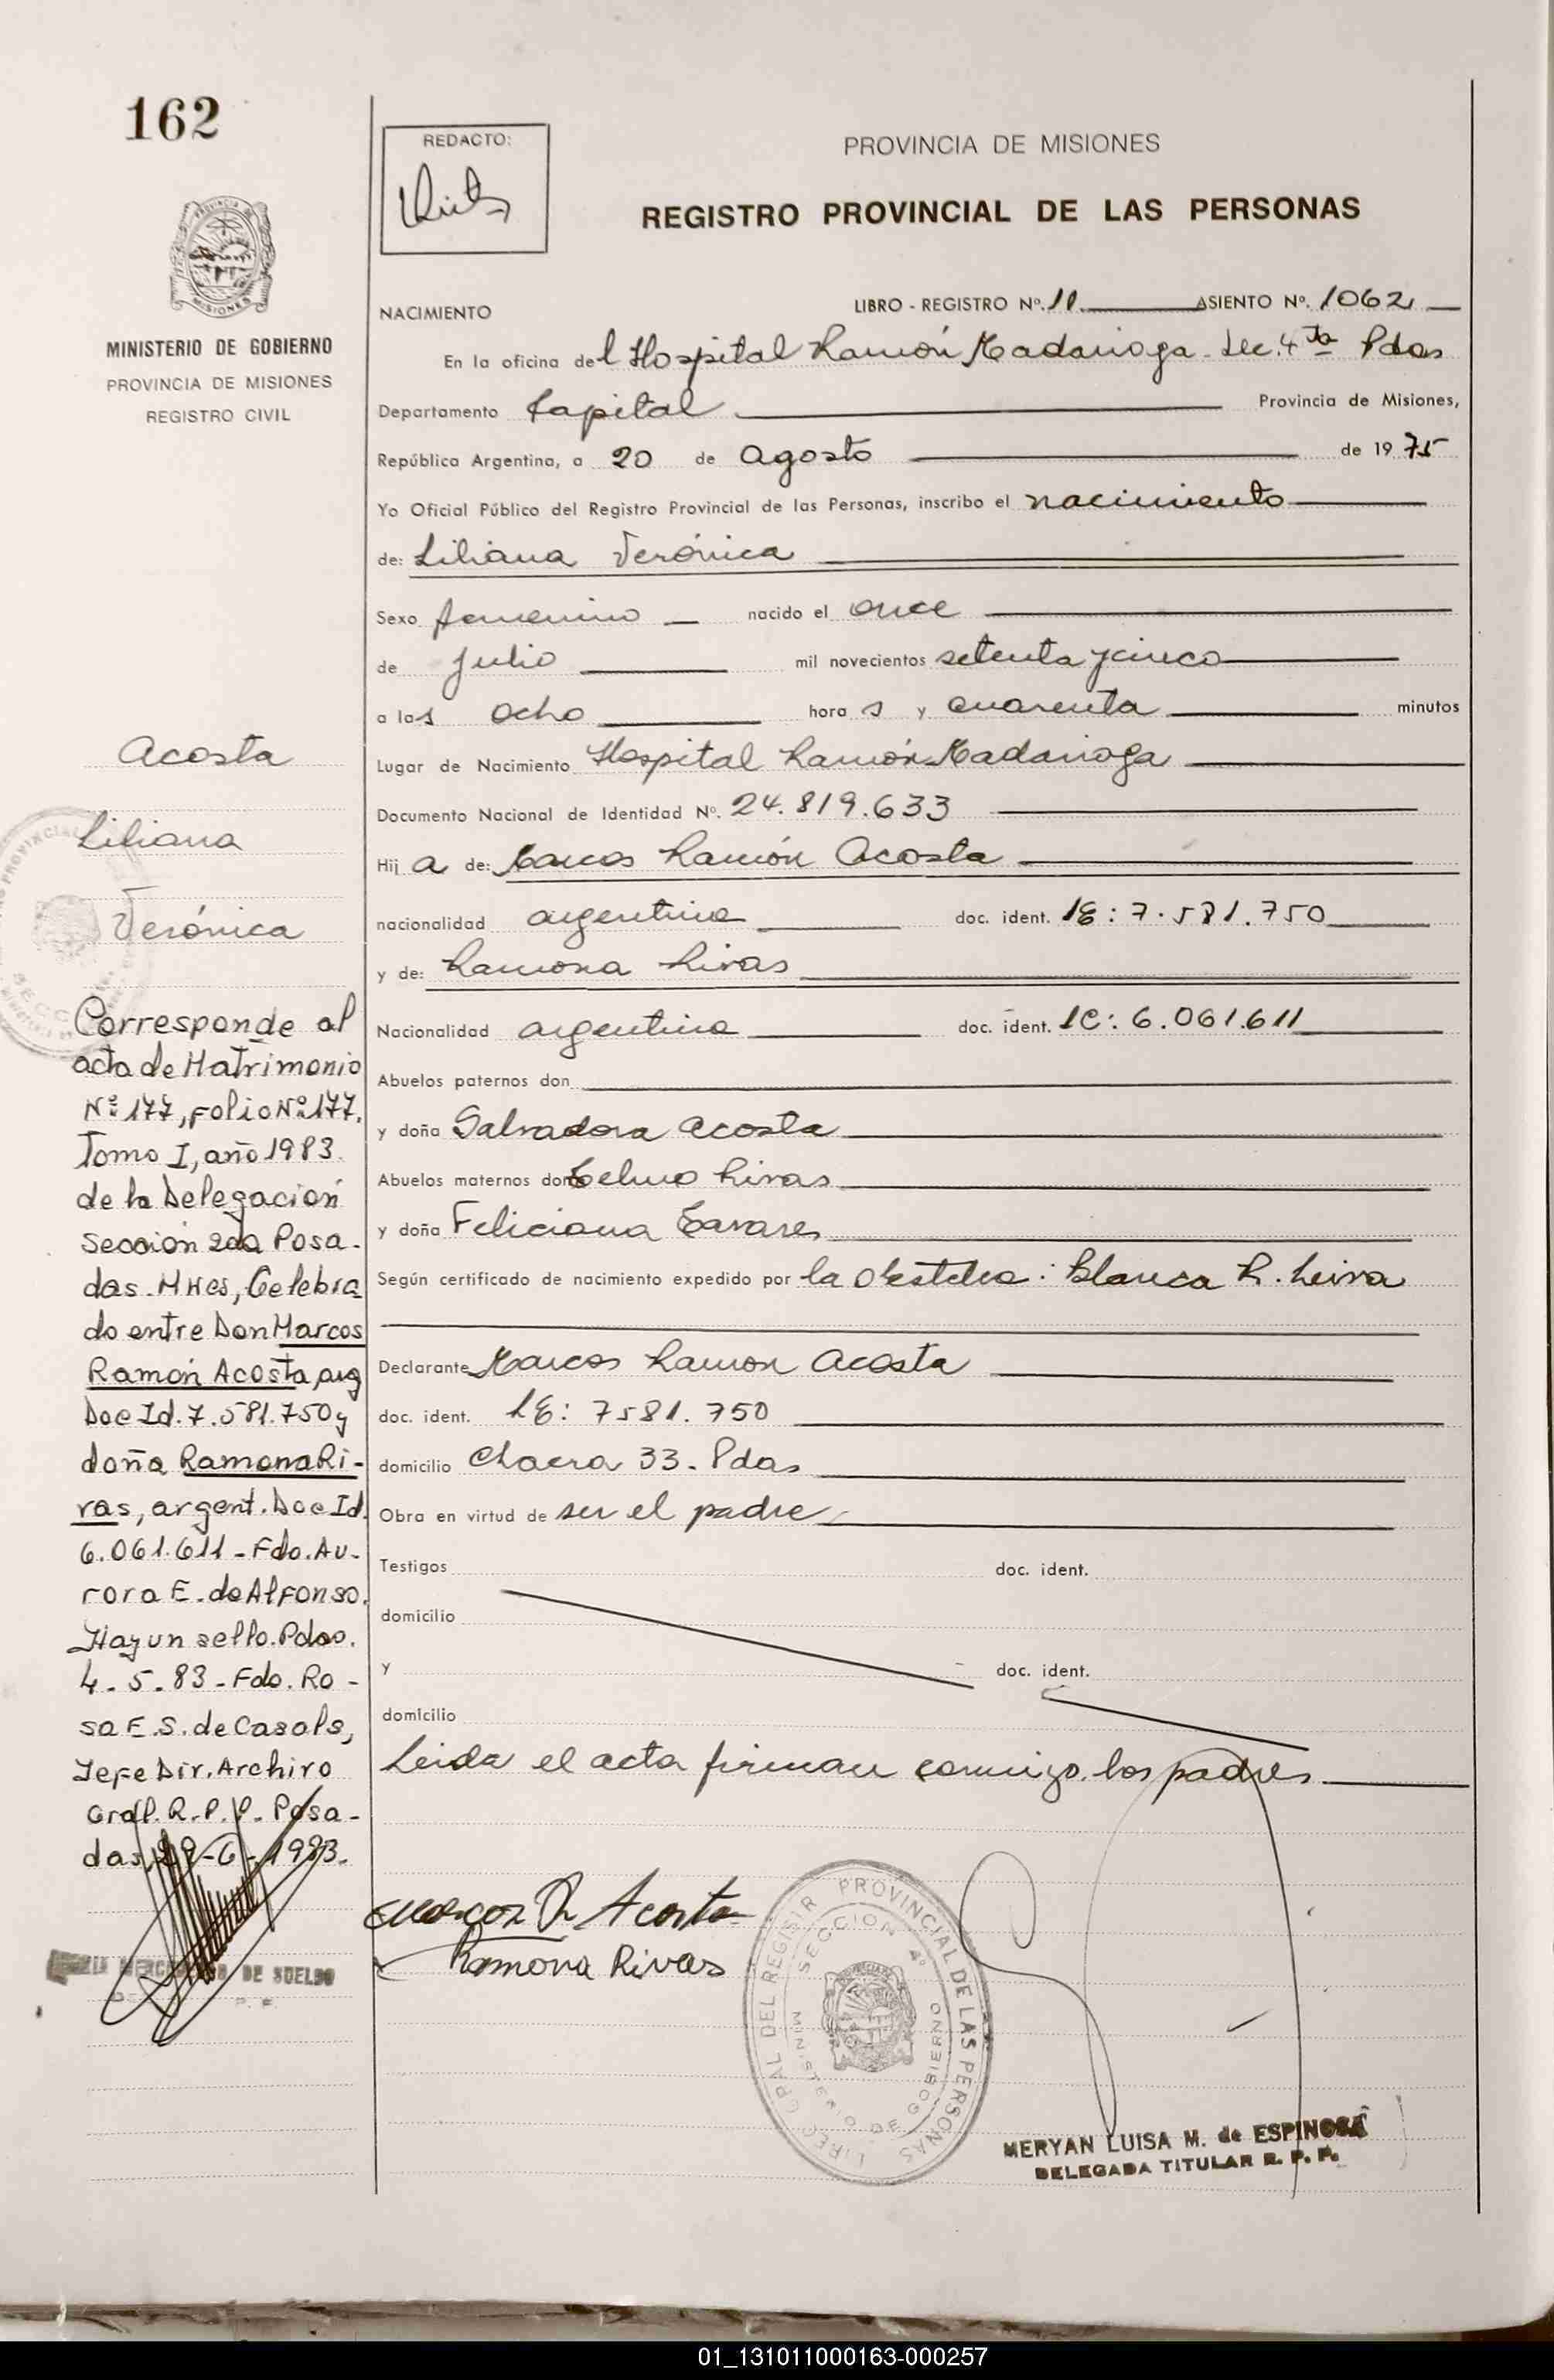 162
REDACTO:
PROVINCIA DE MISIONES
REGISTRO PROVINCIAL DE LAS PERSONAS
MINISTERIO DE GOBIERNO
PROVINCIA DE MISIONES
REGISTRO CIVIL
NACIMIENTO
LIBRO - REGISTRO Nº. 11 ASIENTO Nº. 1062
En la oficina del Hospital Ramón Madariaga - Sec. 4ta Pdas
Departamento Capital Provincia de Misiones,
República Argentina, a 20 de agosto de 1975
Yo Oficial Público del Registro Provincial de las Personas, inscribo el nacimiento
de: Liliana Verónica
Sexo femenino nacido el once
de julio mil novecientos setenta y cinco
a las ocho horas y cuarenta minutos
Lugar de Nacimiento Hospital Ramón Madariaga
Documento Nacional de Identidad Nº. 24.819.633
Hija de: Marcos Ramón Acosta
nacionalidad argentina doc. ident. LE: 7.581.750
y de: Ramona Rivas
Nacionalidad argentina doc. ident. LC: 6.061.611
Abuelos paternos don
y doña Salvadora Acosta
Abuelos maternos don Telmo Rivas
y doña Feliciana Tavares
Según certificado de nacimiento expedido por la obstetra: Blanca R. Leiva
Declarante Marcos Ramon Acosta
doc. ident. LE: 7581.750
domicilio Chacra 33 - Pdas
Obra en virtud de ser el padre
Testigos doc. ident.
domicilio
y doc. ident.
domicilio
Leida el acta firman conmigo los padres
Marcos R Acosta
Ramona Rivas
DIREC. GRAL DEL REGISTR PROVINCIAL DE LAS PERSONAS
SECCION 4º
MINISTERIO DE GOBIERNO
MERYAN LUISA M. de ESPINOSA
DELEGADA TITULAR R. P. P.
Acosta
Liliana
Verónica
Corresponde al
acta de Matrimonio
Nº 177, folio Nº 177.
Tomo I, año 1983.
de la Delegación
Sección 2da Posa-
das - Mnes, Celebra
do entre Don Marcos
Ramón Acosta, arg
Doc Id. 7.581.750 y
doña Ramona Ri-
vas, argent. Doc Id.
6.061.611 - Fdo. Au-
rora E. de Alfonso.
Hay un sello. Pdas.
4-5-83 - Fdo. Ro-
sa E. S. de Casals,
Jefe Dir. Archivo
Gral. R. P. P. Posa-
das, 29-6-1983.
DE SUELDO
01_131011000163-000257